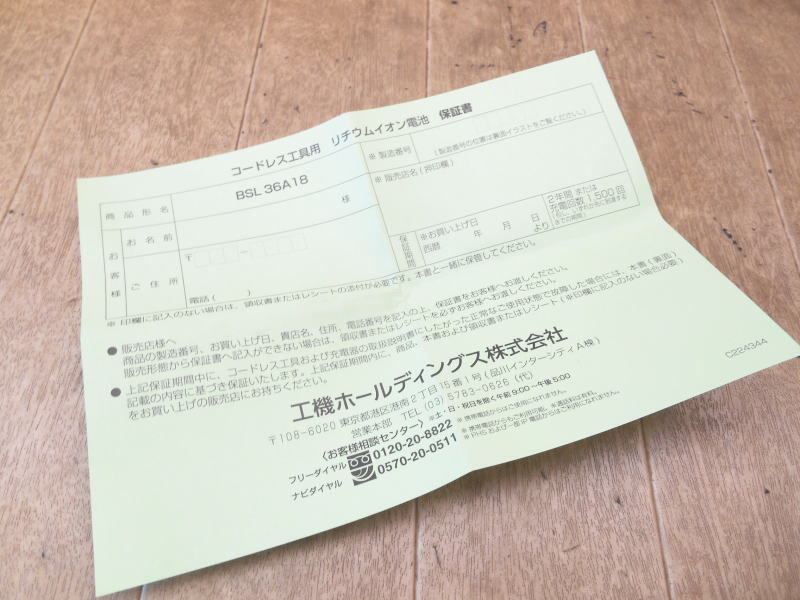 コードレス工具用 リチウムイオン電池 保証書
商品形名
BSL 36A18
※ 製造番号
(製造番号の位置は裏面イラストをご覧ください。)
お客様
お名前
様
※ 販売店名(㊞印欄)
ご住所
〒
電話( )
保証期間
※お買い上げ日
西暦 年 月 日より
2年間 または
充電回数 1,500 回
(但し、いずれか先に到達する
までの期間)
※ 印欄に記入のない場合は、領収書またはレシートの添付が必要です。本書と一緒に保管してください。
● 販売店様へ
商品の製造番号、お買い上げ日、貴店名、住所、電話番号を記入の上、保証書をお客様へお渡しください。
販売形態から保証書へ記入ができない場合は、領収書またはレシートを必ずお客様へお渡しください。
● 上記保証期間中に、コードレス工具および充電器の取扱説明書にしたがった正常なご使用状態で故障した場合には、本書(裏面)
記載の内容に基づき保証いたします。上記保証期間内に、商品、本書および領収書またはレシート(※印欄に記入のない場合必要)
をお買い上げの販売店にお持ちください。
工機ホールディングス株式会社
〒108-6020 東京都港区港南2丁目15番1号(品川インターシティA棟)
営業本部 TEL (03) 5783-0626 (代)
〈お客様相談センター〉 ※土・日・祝日を除く午前9:00~午後5:00
フリーダイヤル 0120-20-8822 ※ 携帯電話からはご使用になれません。
ナビダイヤル 0570-20-0511 ※ 携帯電話からもご利用可能。※通話料は有料。
※ PHS および一部 IP 電話からはご利用になれません。
C224344